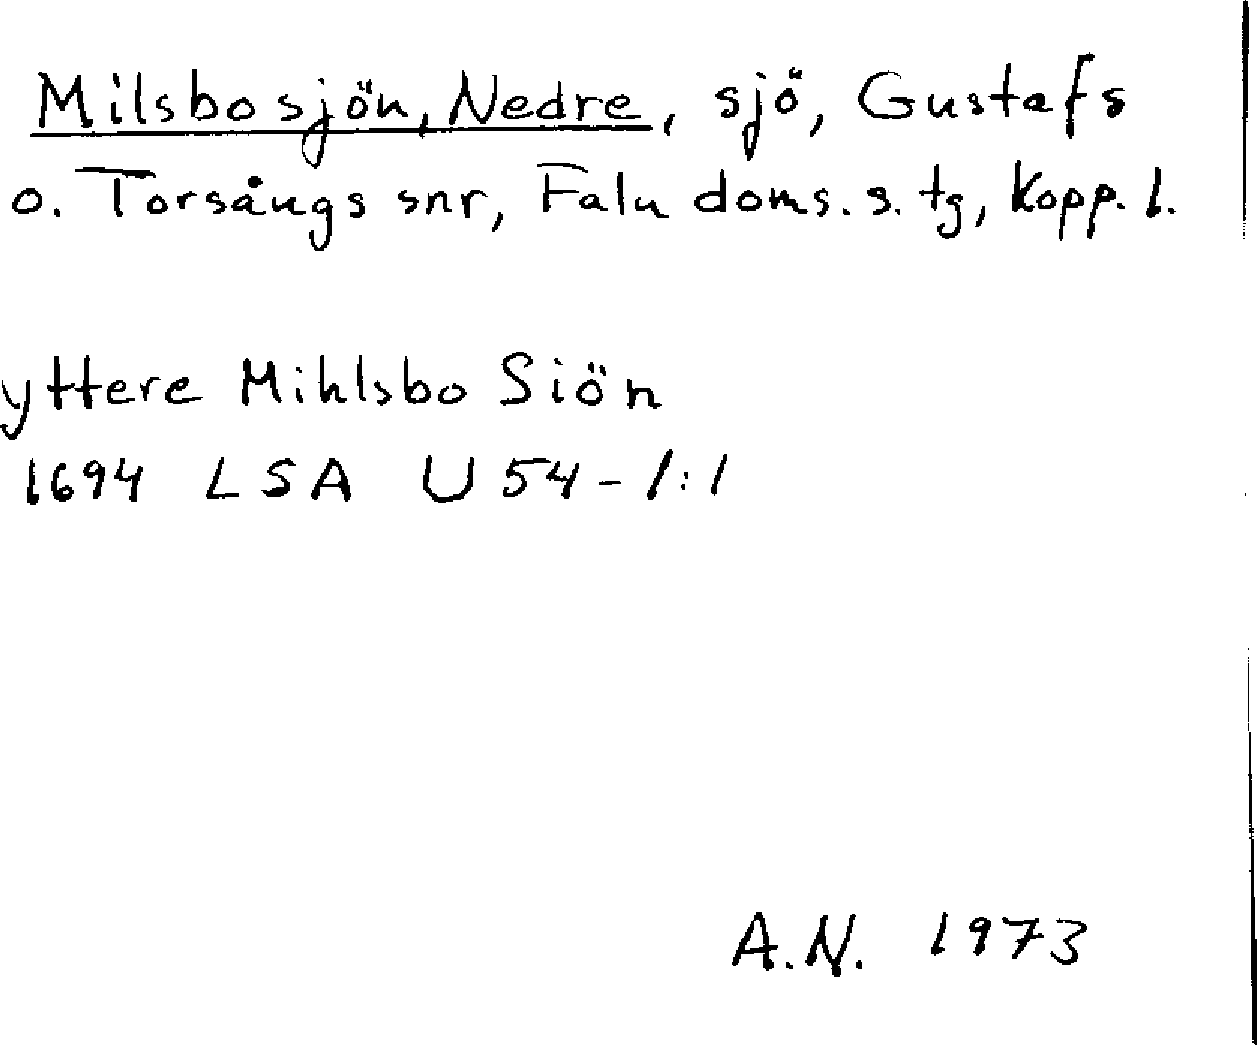 Milsbosjön, Nedre, sjö, Gustafs
o. Torsångs snr, Falu doms. s. tg, Kopp. l.
yttere Mihlsbo Siön
1694 LSA U 54-1:1
A.N. 1973